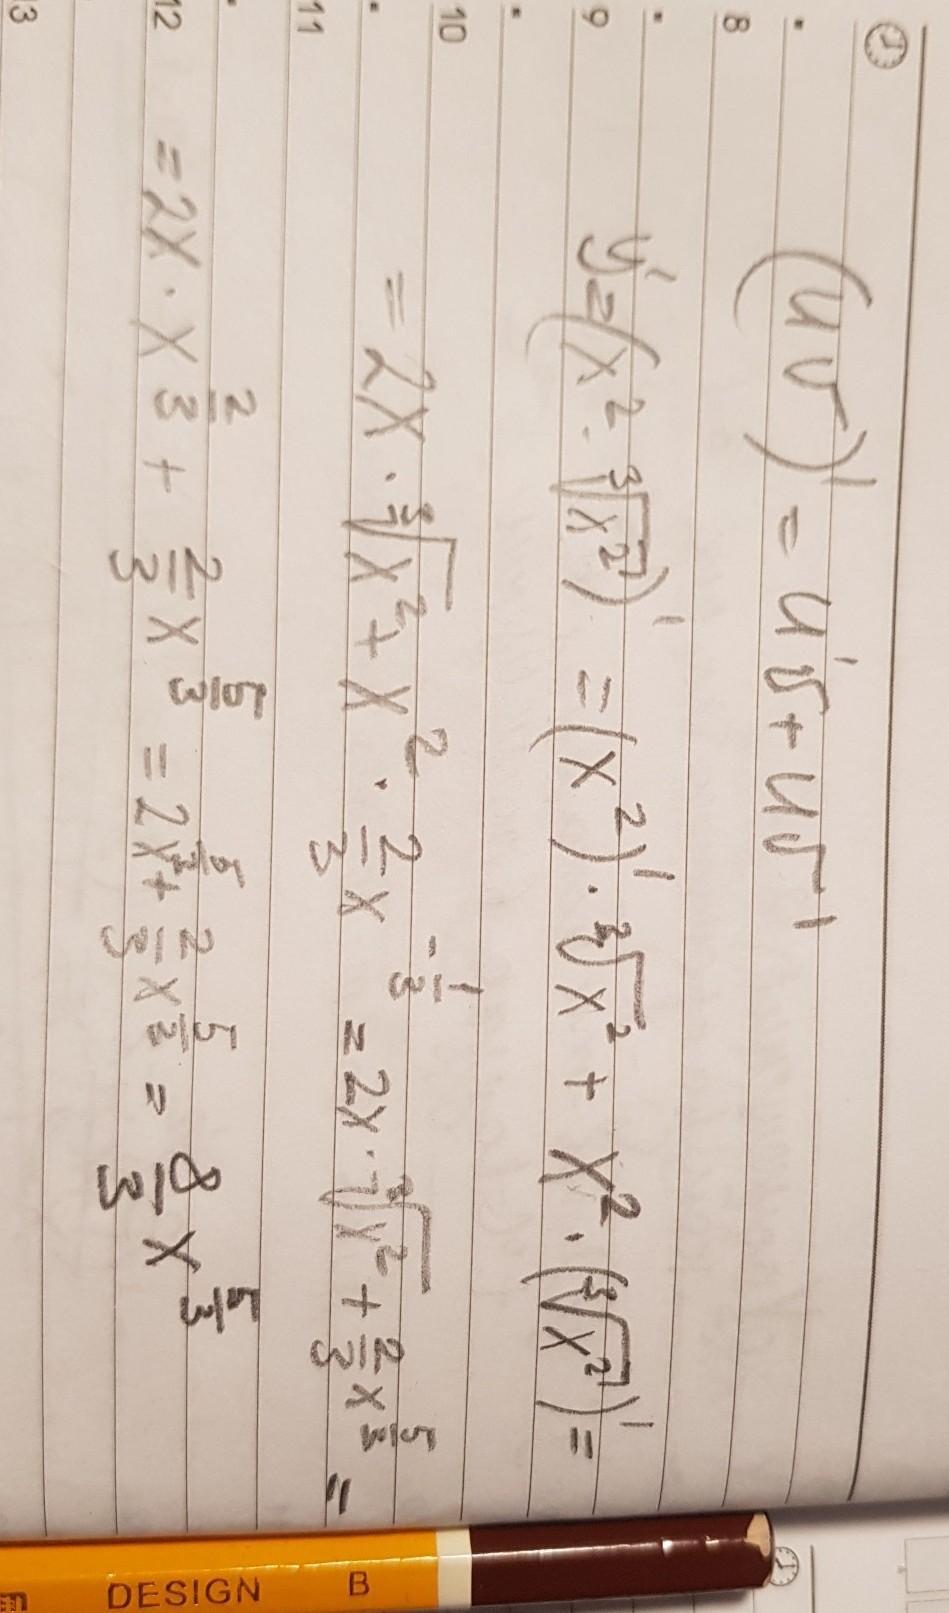 8
(uv)' = u'v + uv'
9
y' = (x² · ∛x²)' = (x²)' · ∛x² + x² · (∛x²)' =
10
= 2x · ∛x² + x² · 2/3 x^(-1/3) = 2x · ∛x² + 2/3 x^(5/3) =
11
12
= 2x · x^(2/3) + 2/3 x^(5/3) = 2x^(5/3) + 2/3 x^(5/3) = 8/3 x^(5/3)
13
DESIGN B